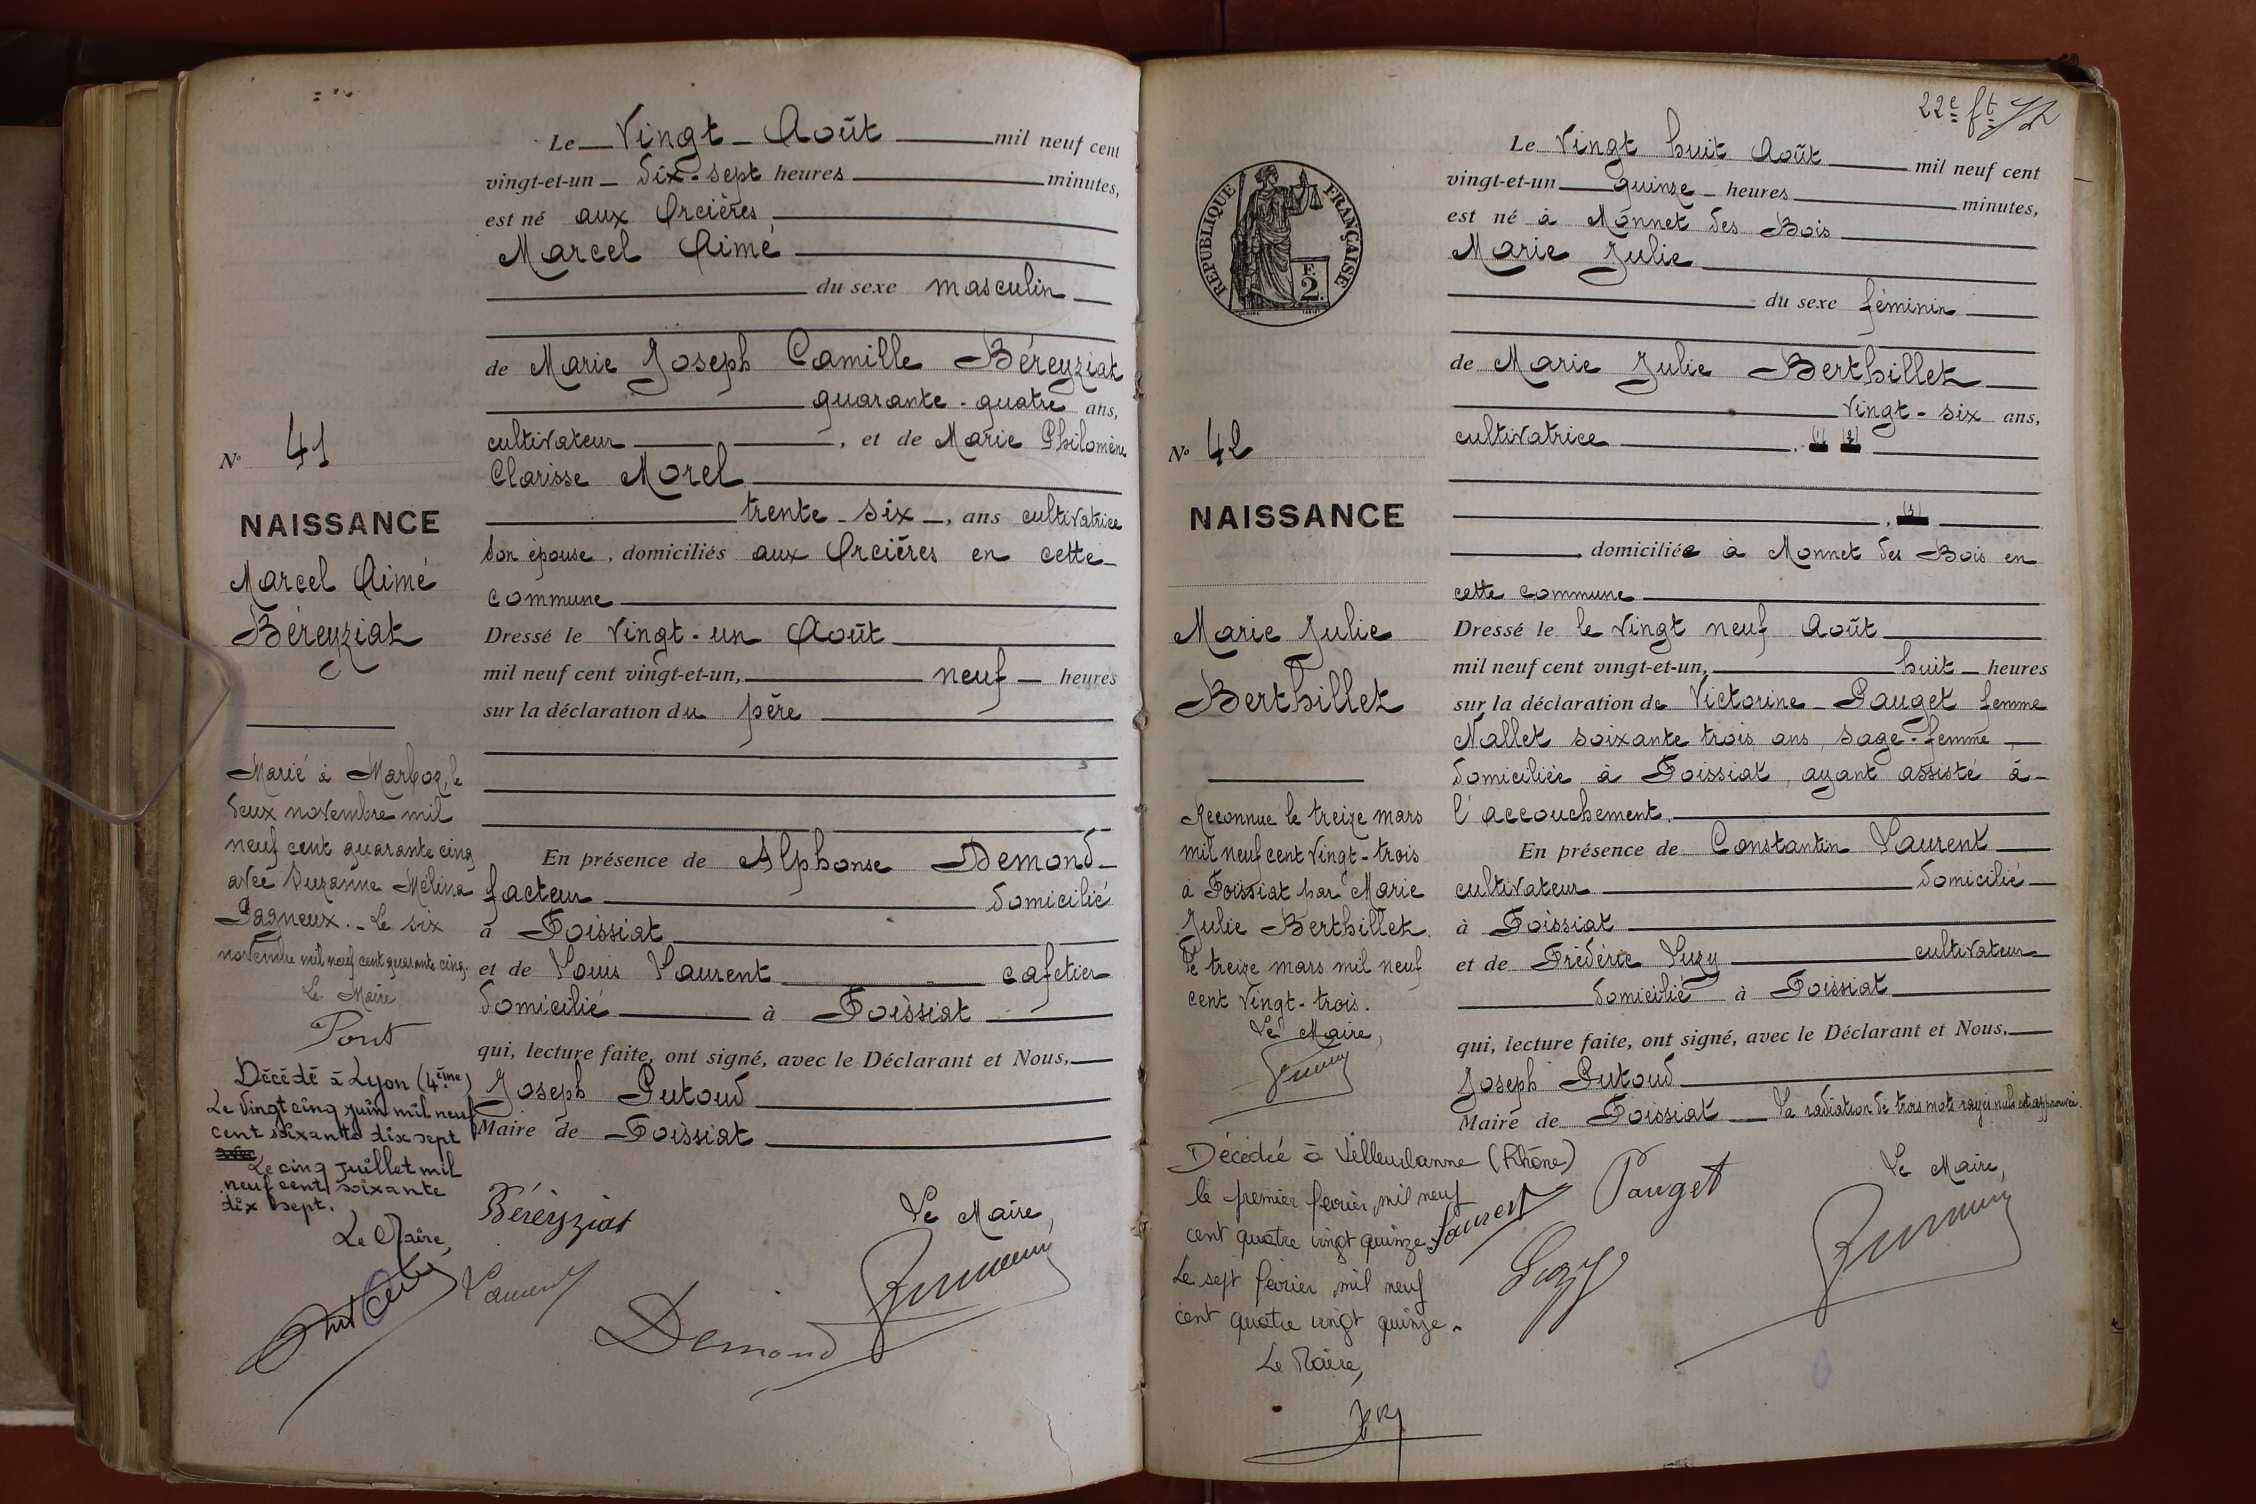 Le Vingt Août mil neuf cent
vingt-et-un dix-sept heures minutes,
est né aux Orcières
Marcel Aimé
du sexe masculin
de Marie Joseph Camille Béreyziat
quarante-quatre ans,
cultivateur, et de Marie Philomène
Clarisse Morel
trente-six, ans cultivatrice
son épouse, domiciliés aux Orcières en cette
commune
Dressé le vingt-un Août
mil neuf cent vingt-et-un, neuf heures
sur la déclaration du père
En présence de Alphonse Demond
facteur domicilié
à Foissiat
et de Louis Laurent cafetier
domicilié à Foissiat
qui, lecture faite, ont signé, avec le Déclarant et Nous,
Joseph Putoud
Maire de Foissiat
Béreyziat
Le Maire,
Laurent
Demond
No 41
NAISSANCE
Marcel Aimé
Béreyziat
Marié à Marboz, le
deux novembre mil
neuf cent quarante cinq
avec Suzanne Mélina
Pagneux. - Le six
novembre mil neuf cent quarante cinq.
Le Maire
Pont
Décédé à Lyon (4ème)
Le vingt cinq juin mil neuf
cent soixante dix sept
Le cinq juillet mil
neuf cent soixante
dix sept.
Le Maire,
22e ft
Le Vingt huit Août mil neuf cent
vingt-et-un quinze heures minutes,
est né à Monnet des Bois
Marie Julie
du sexe féminin
de Marie Julie Berthillet
vingt-six ans,
cultivatrice, (1) (2)
(3)
domiciliée à Monnet des Bois en
cette commune
Dressé le le vingt neuf Août
mil neuf cent vingt-et-un, huit heures
sur la déclaration de Victorine Pauget femme
Nallet soixante trois ans, sage-femme
domiciliée à Foissiat, ayant assisté à
l'accouchement.
En présence de Constantin Laurent
cultivateur domicilié
à Foissiat
et de Frédéric Luzy cultivateur
domicilié à Foissiat
qui, lecture faite, ont signé, avec le Déclarant et Nous,
Joseph Putoud
Maire de Foissiat La radiation de trois mots rayés nuls est approuvée.
Pauget
Le Maire,
Laurent
Luzy
REPUBLIQUE FRANÇAISE
F.
2.
No 42
NAISSANCE
Marie Julie
Berthillet
Reconnue le treize mars
mil neuf cent vingt-trois
à Foissiat par Marie
Julie Berthillet.
Le treize mars mil neuf
cent vingt-trois.
Le Maire,
Décédée à Villeurbanne (Rhône)
le premier février mil neuf
cent quatre vingt quinze
Le sept février mil neuf
cent quatre vingt quinze.
Le Maire,